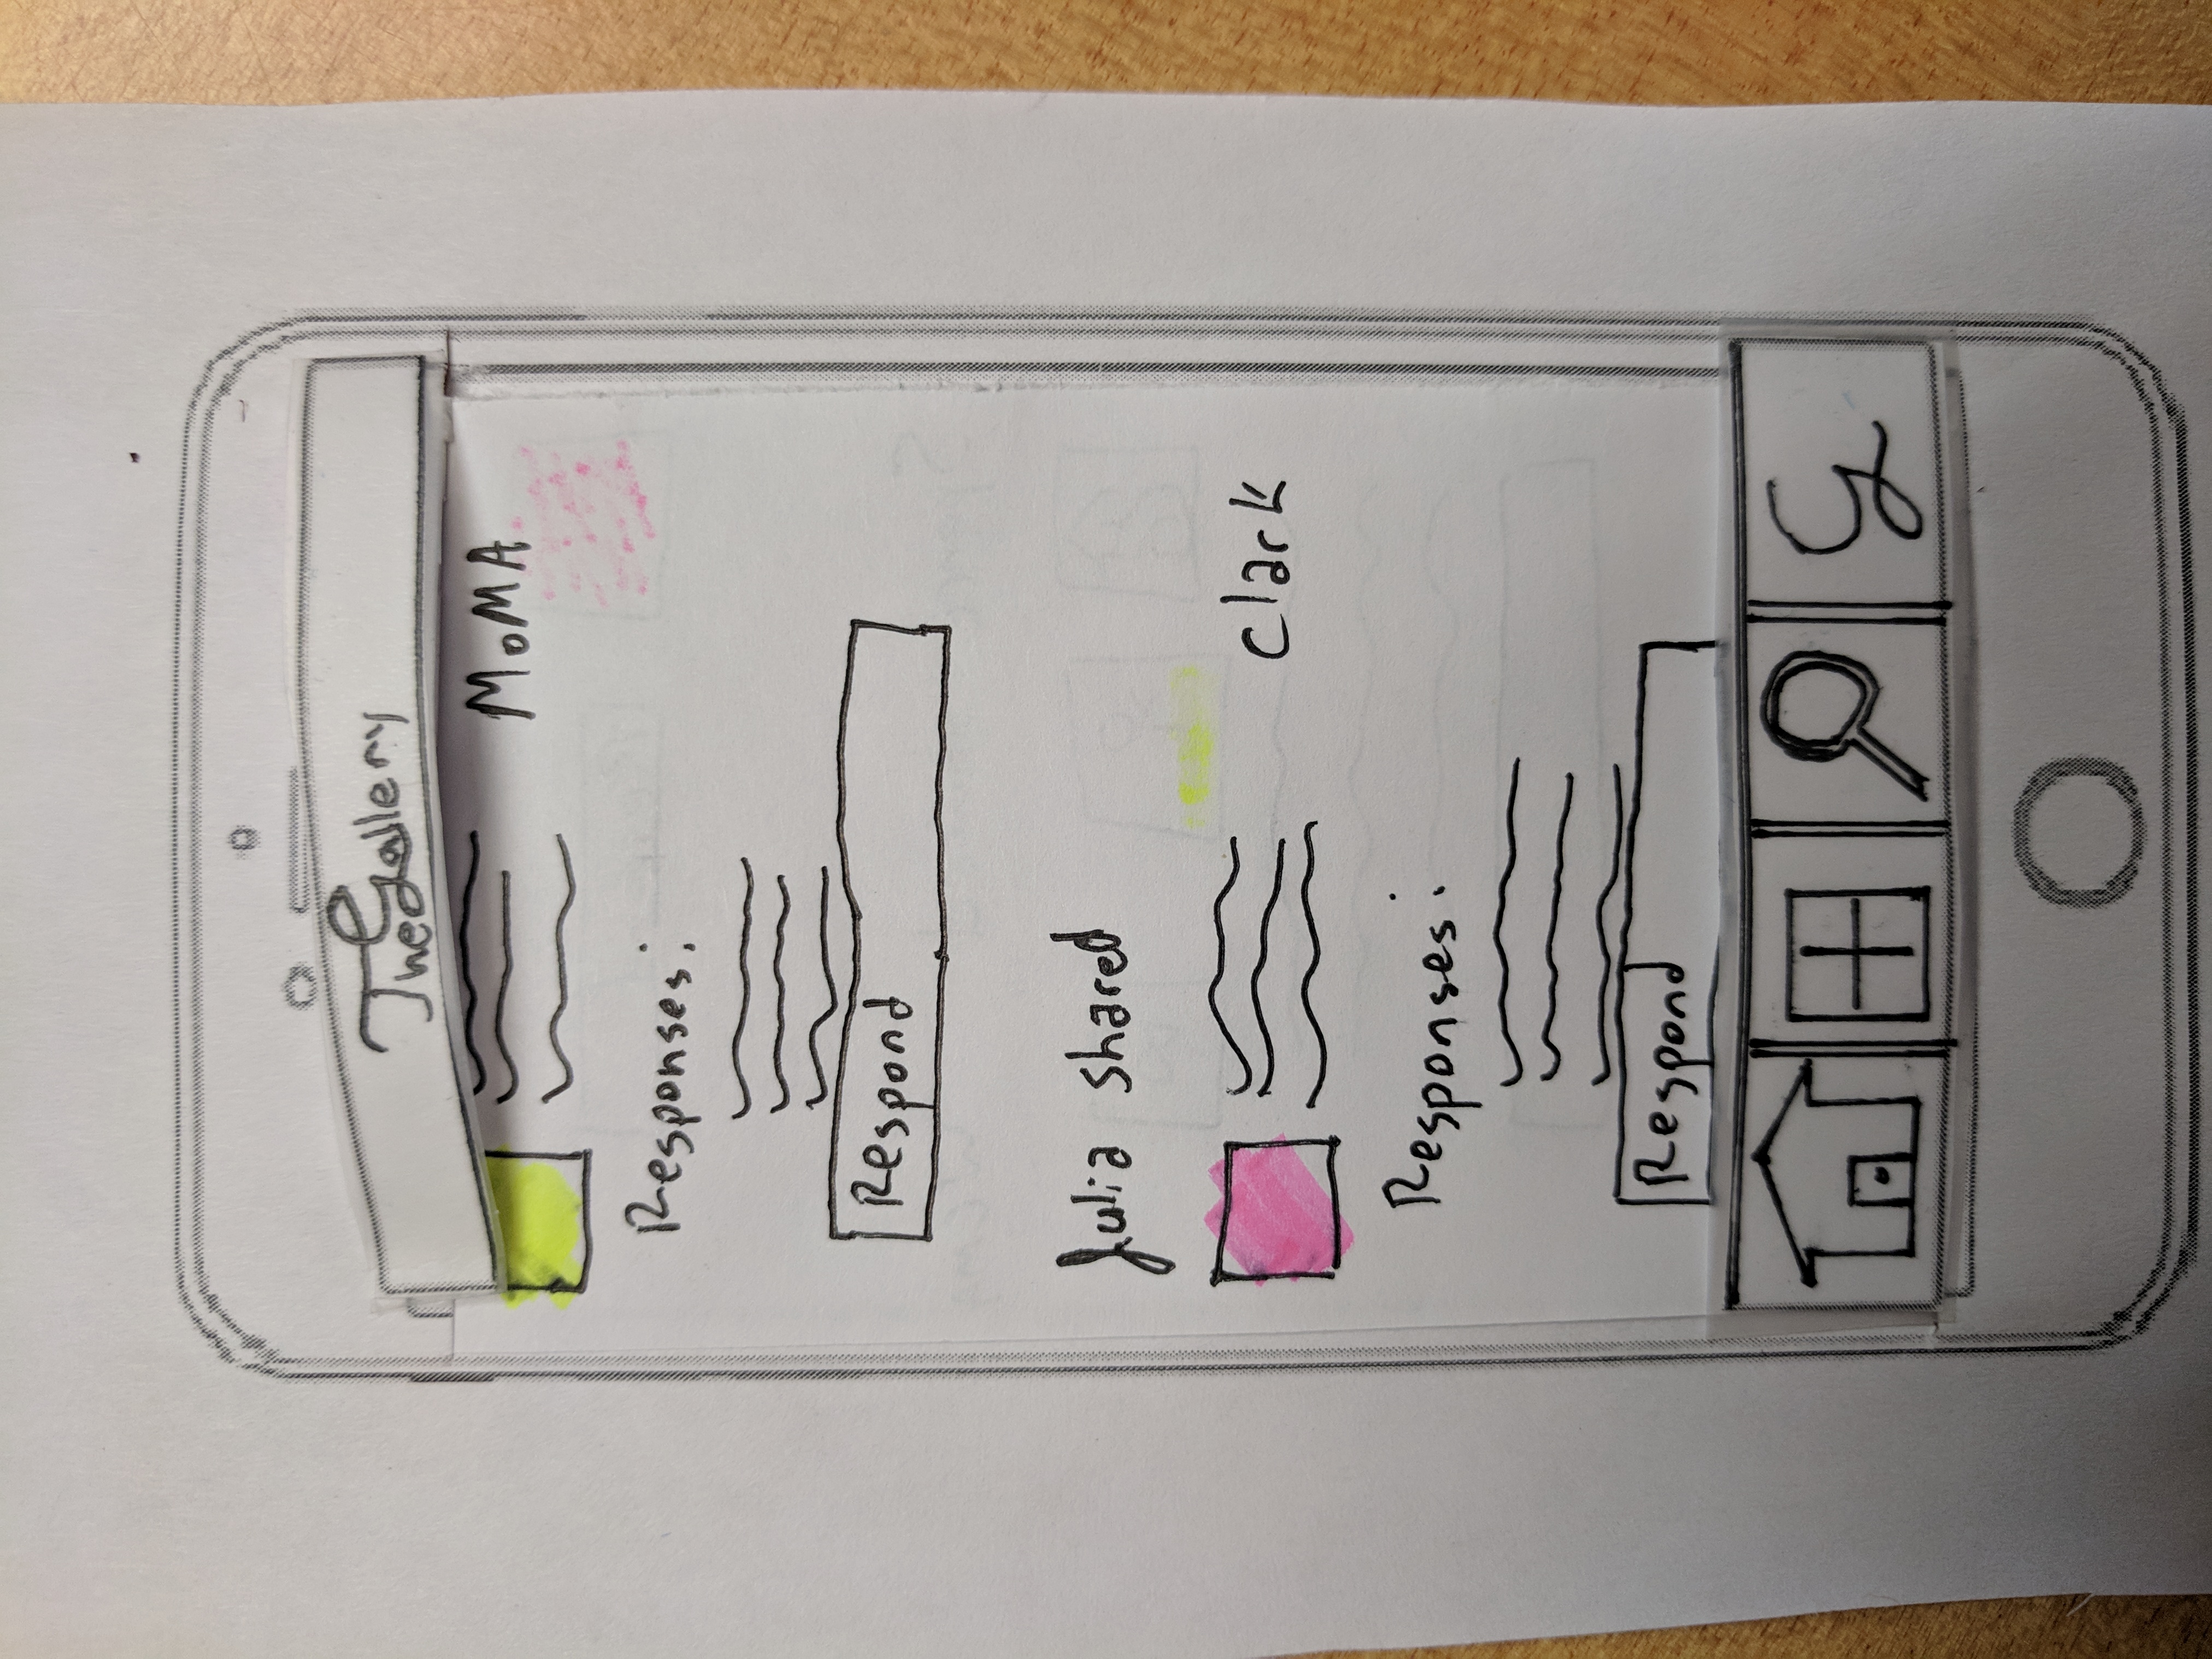 The Gallery
MoMA
Responses:
Respond
Julia shared
Clark
Responses:
Respond